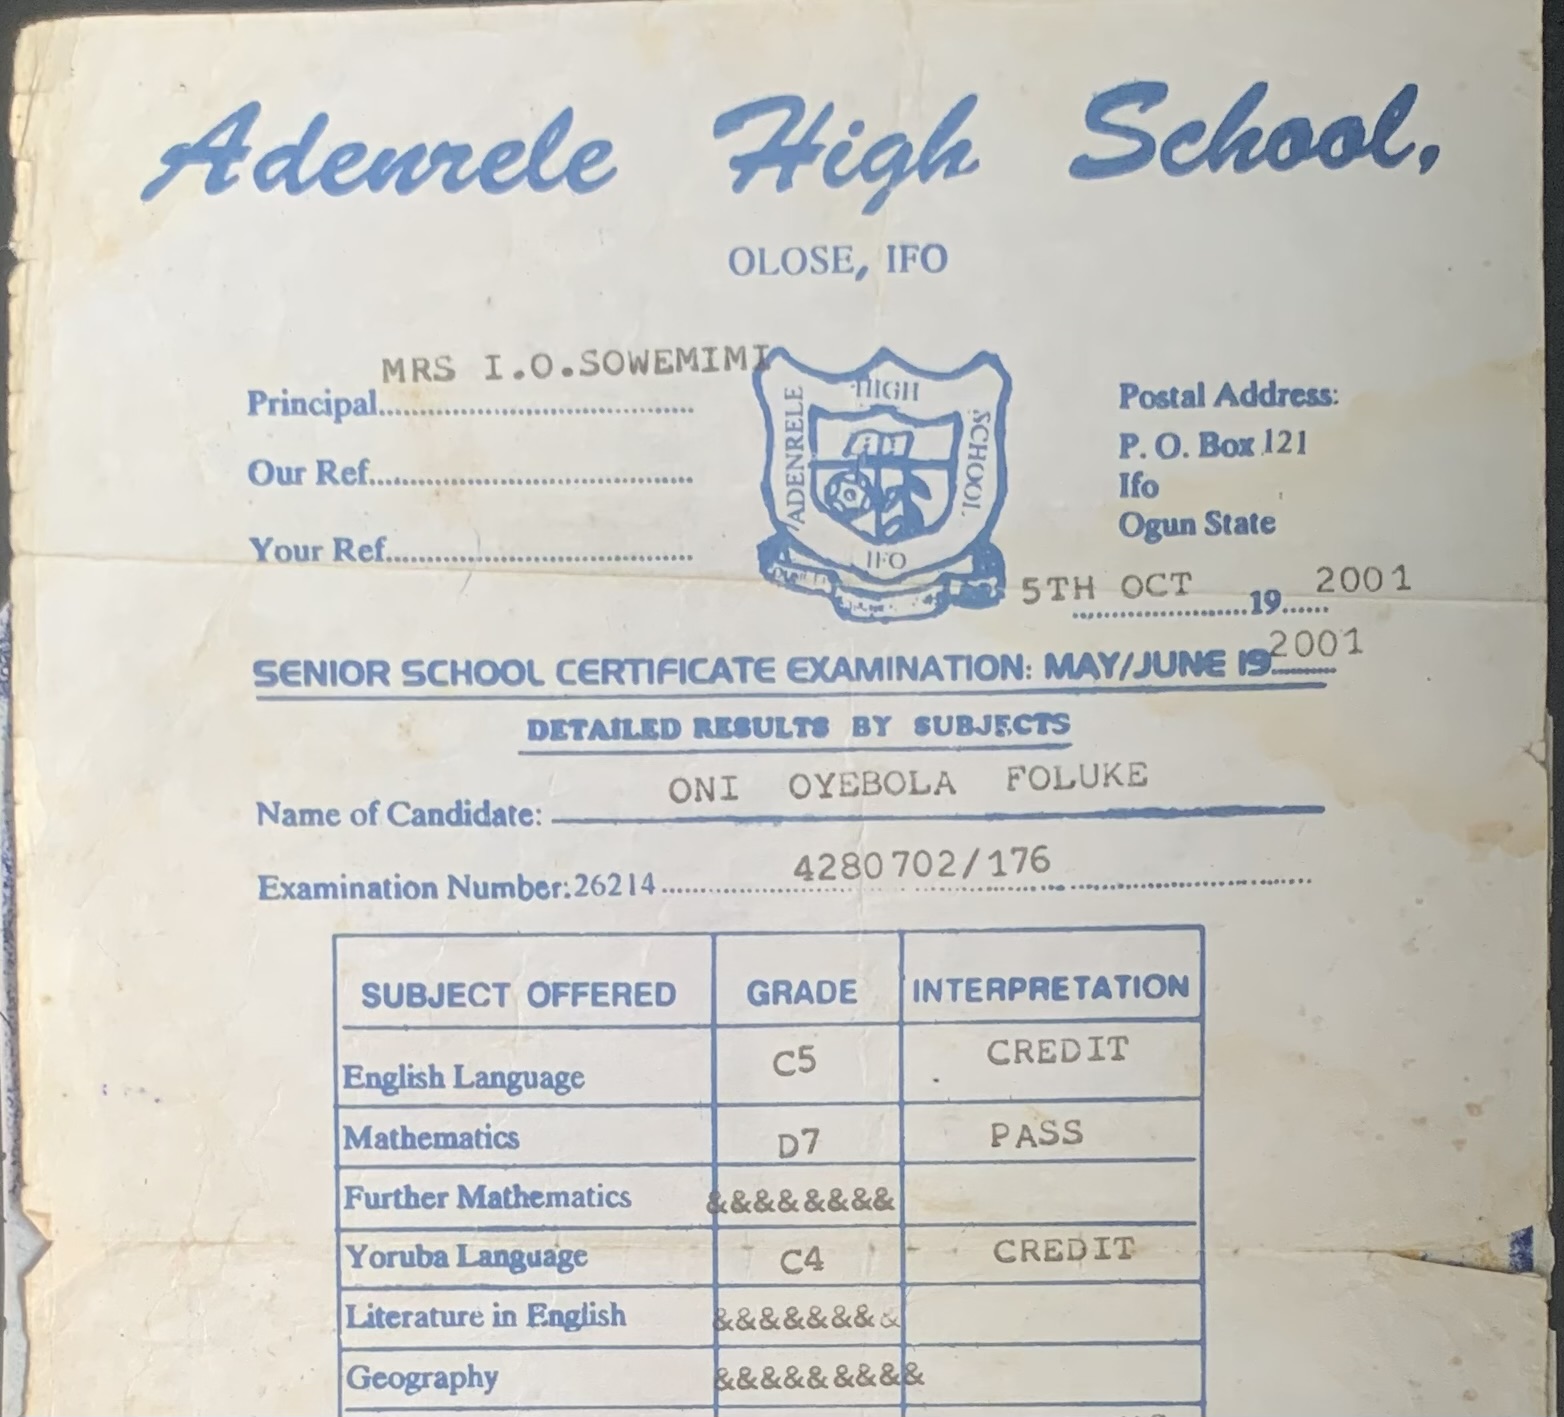 Adenrele High School,
OLOSE, IFO
MRS I.O.SOWEMIMI
Principal........................................
Our Ref..........................................
Your Ref........................................
ADENRELE HIGH SCHOOL
IFO
Postal Address:
P. O. Box 121
Ifo
Ogun State
5TH OCT ......................19...... 2001
SENIOR SCHOOL CERTIFICATE EXAMINATION: MAY/JUNE 19........ 2001
DETAILED RESULTS BY SUBJECTS
Name of Candidate: ONI OYEBOLA FOLUKE
Examination Number:26214........ 4280702/176
SUBJECT OFFERED GRADE INTERPRETATION
English Language C5 CREDIT
Mathematics D7 PASS
Further Mathematics &&&&&&&&
Yoruba Language C4 CREDIT
Literature in English &&&&&&&&
Geography &&&&&&&&&